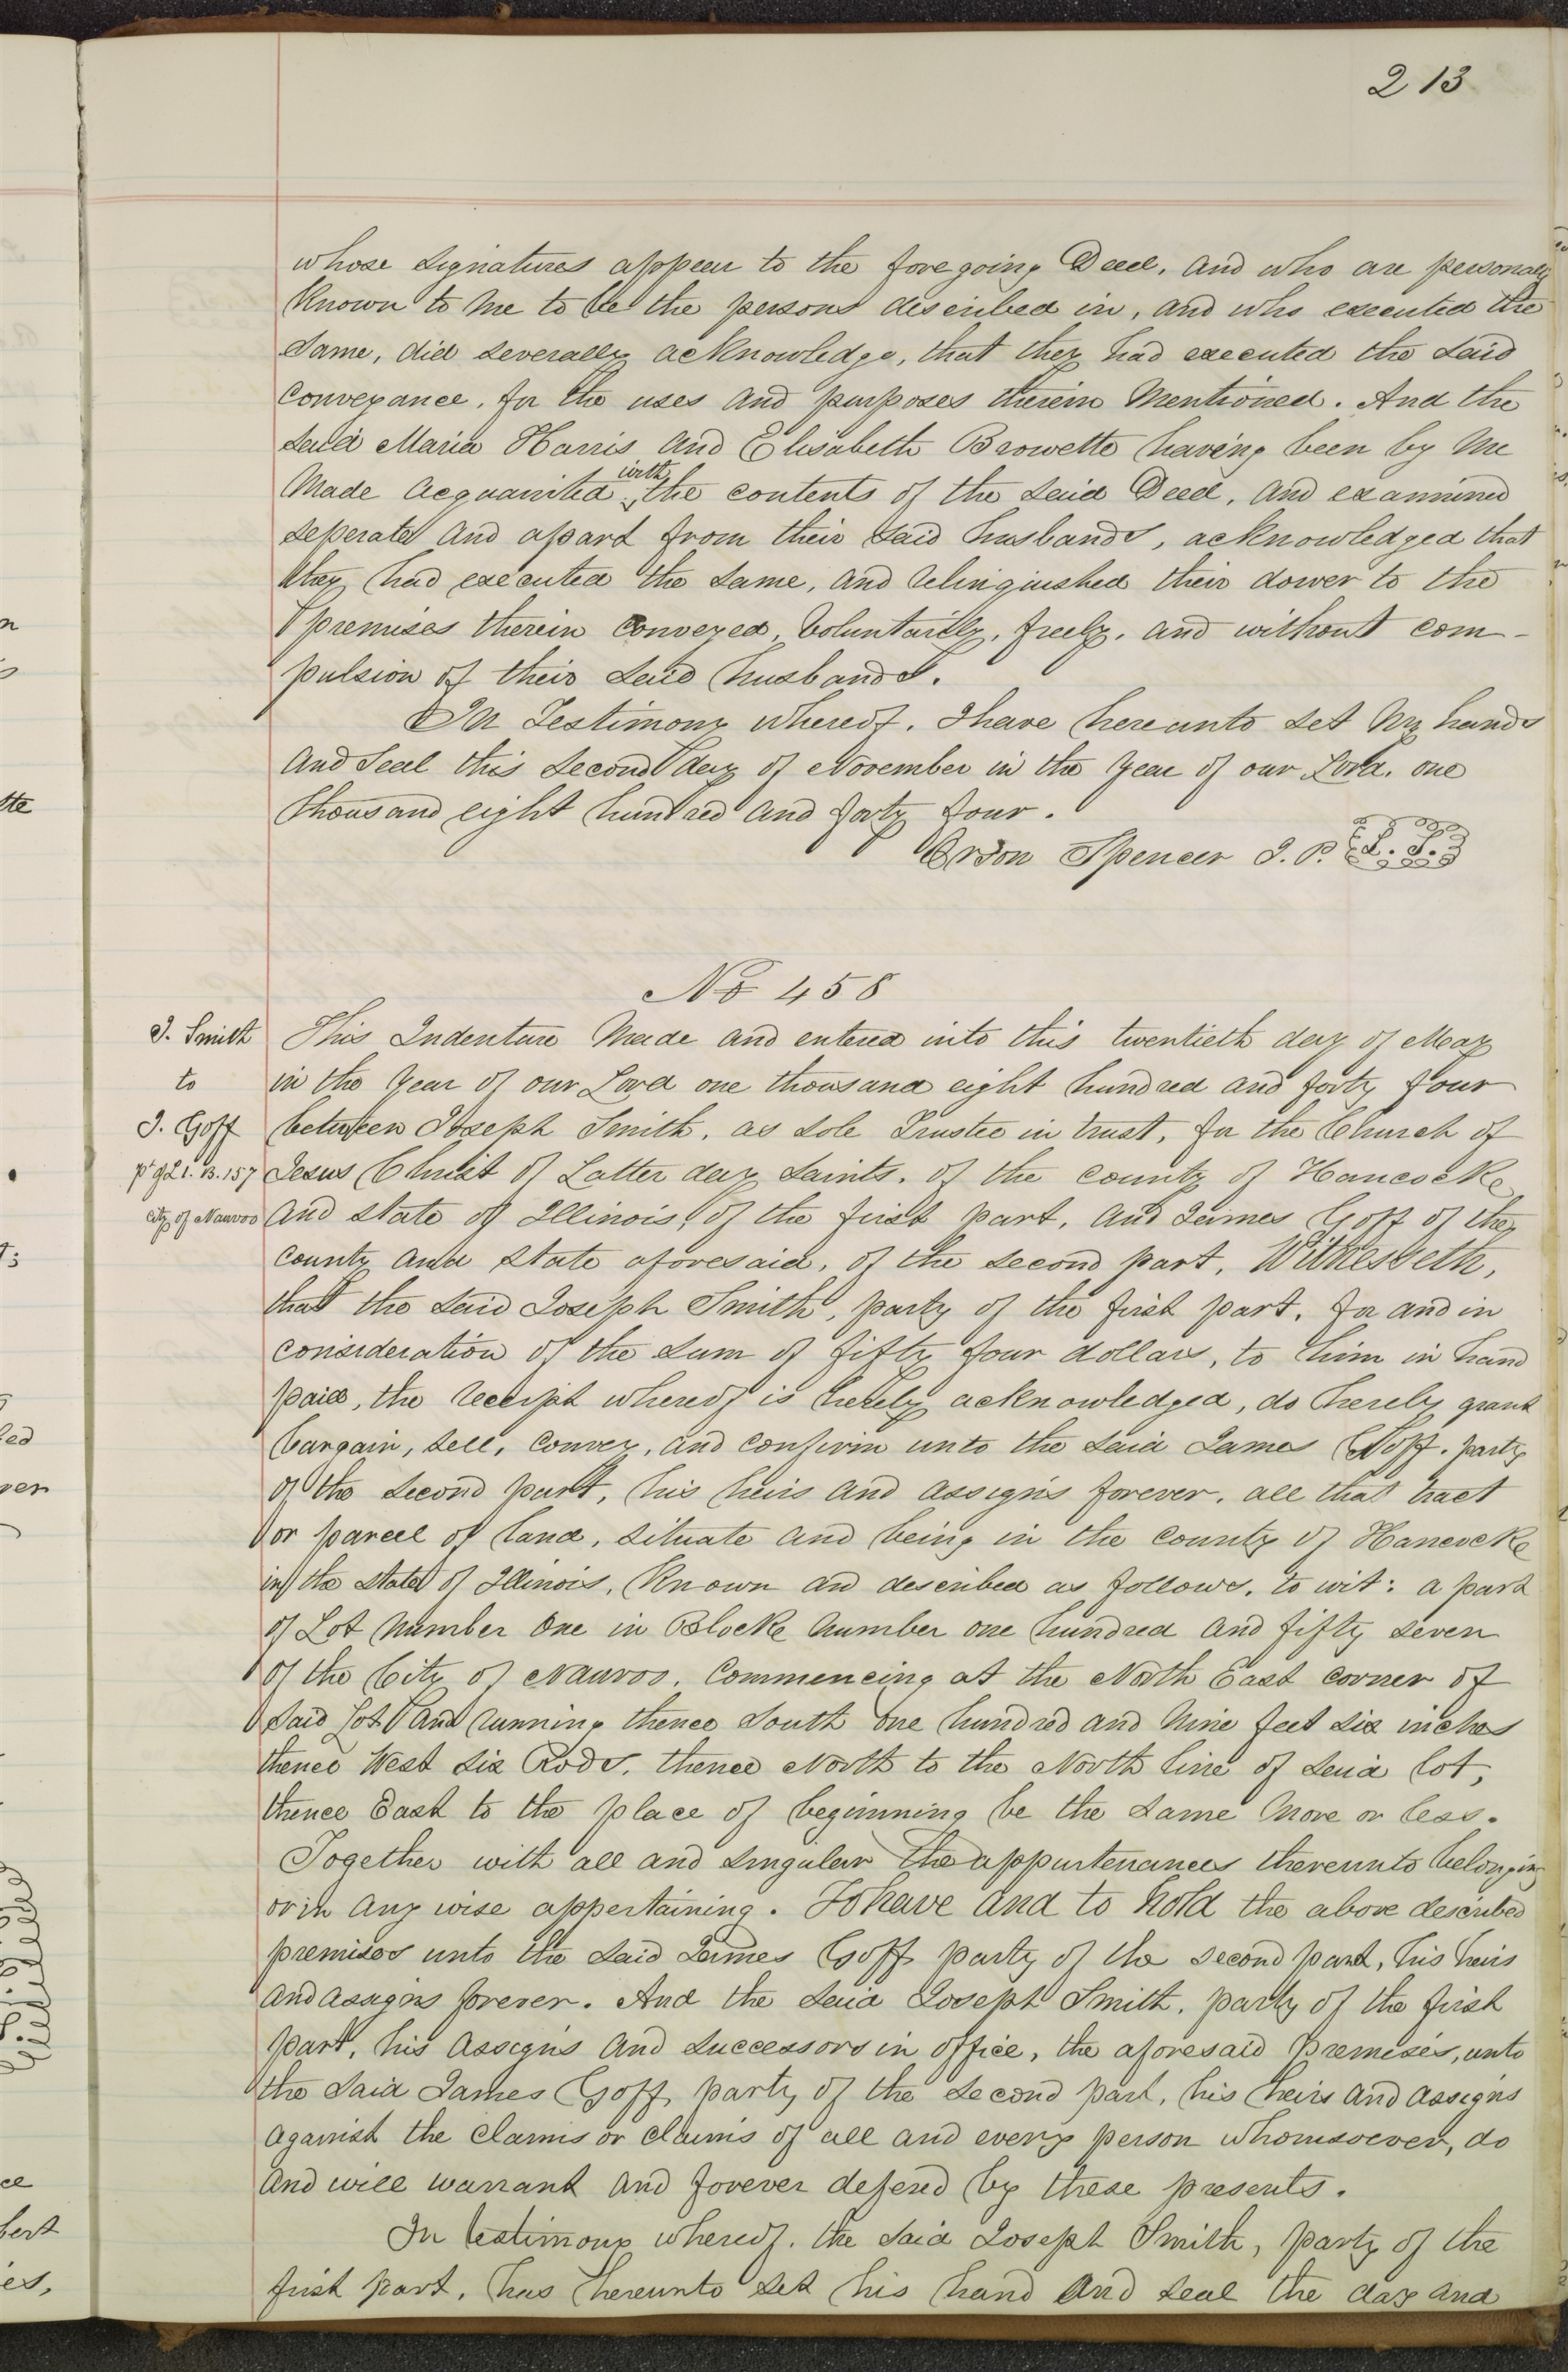 213
whose signatures appear to the foregoing Deed, and who are personally
known to me to be the persons described in, and who executed the
same, did severally acknowledge, that they had executed the said
conveyance, for the uses and purposes therein mentioned. And the
said Maria Harris and Elisabeth Browette having been by me
made acquainted with the contents of the said Deed, and examined
seperate and apart from their said husbands, acknowledged that
they had executed the same, and relinquished their dower to the
premises therein conveyed, voluntarily, freely, and without com-
pulsion of their said husbands.
In Testimony whereof, I have hereunto set my hand
and seal this second day of November in the year of our Lord, one
thousand eight hundred and forty four.
Orson Spencer J. P. L. S.
No 458
J. Smith
to
J. Goff
pt of L 1. B. 157
city of Nauvoo
This Indenture made and entered into this twentieth day of May
in the year of our Lord one thousand eight hundred and forty four
between Joseph Smith, as sole Trustee in trust, for the Church of
Jesus Christ of Latter day Saints, of the county of Hancock
and state of Illinois, of the first part, and James Goff of the
county and state aforesaid, of the second part, Witnesseth,
that the said Joseph Smith, party of the first part, for and in
consideration of the sum of fifty four dollars, to him in hand
paid, the receipt whereof is hereby acknowledged, do hereby grant
bargain, sell, convey, and confirm unto the said James Goff, party
of the second part, his heirs and assigns forever, all that tract
or parcel of land, situate and being in the county of Hancock
in the state of Illinois, known and described as follows, to wit: a part
of Lot number one in Block number one hundred and fifty seven
of the City of Nauvoo, commencing at the North East corner of
said Lot and running thence South one hundred and nine feet six inches
thence West six Rods, thence North to the North line of said lot,
thence East to the place of beginning be the same more or less.
Together with all and singular the appurtenances thereunto belonging
or in any wise appertaining. To have and to hold the above described
premises unto the said James Goff party of the second part, his heirs
and assigns forever. And the said Joseph Smith, party of the first
part, his assigns and successors in office, the aforesaid premises, unto
the said James Goff, party of the second part, his heirs and assigns
against the claims or claims of all and every person whomsoever, do
and will warrant and forever defend by these presents.
In testimony whereof, the said Joseph Smith, party of the
first part, has hereunto set his hand and seal the day and